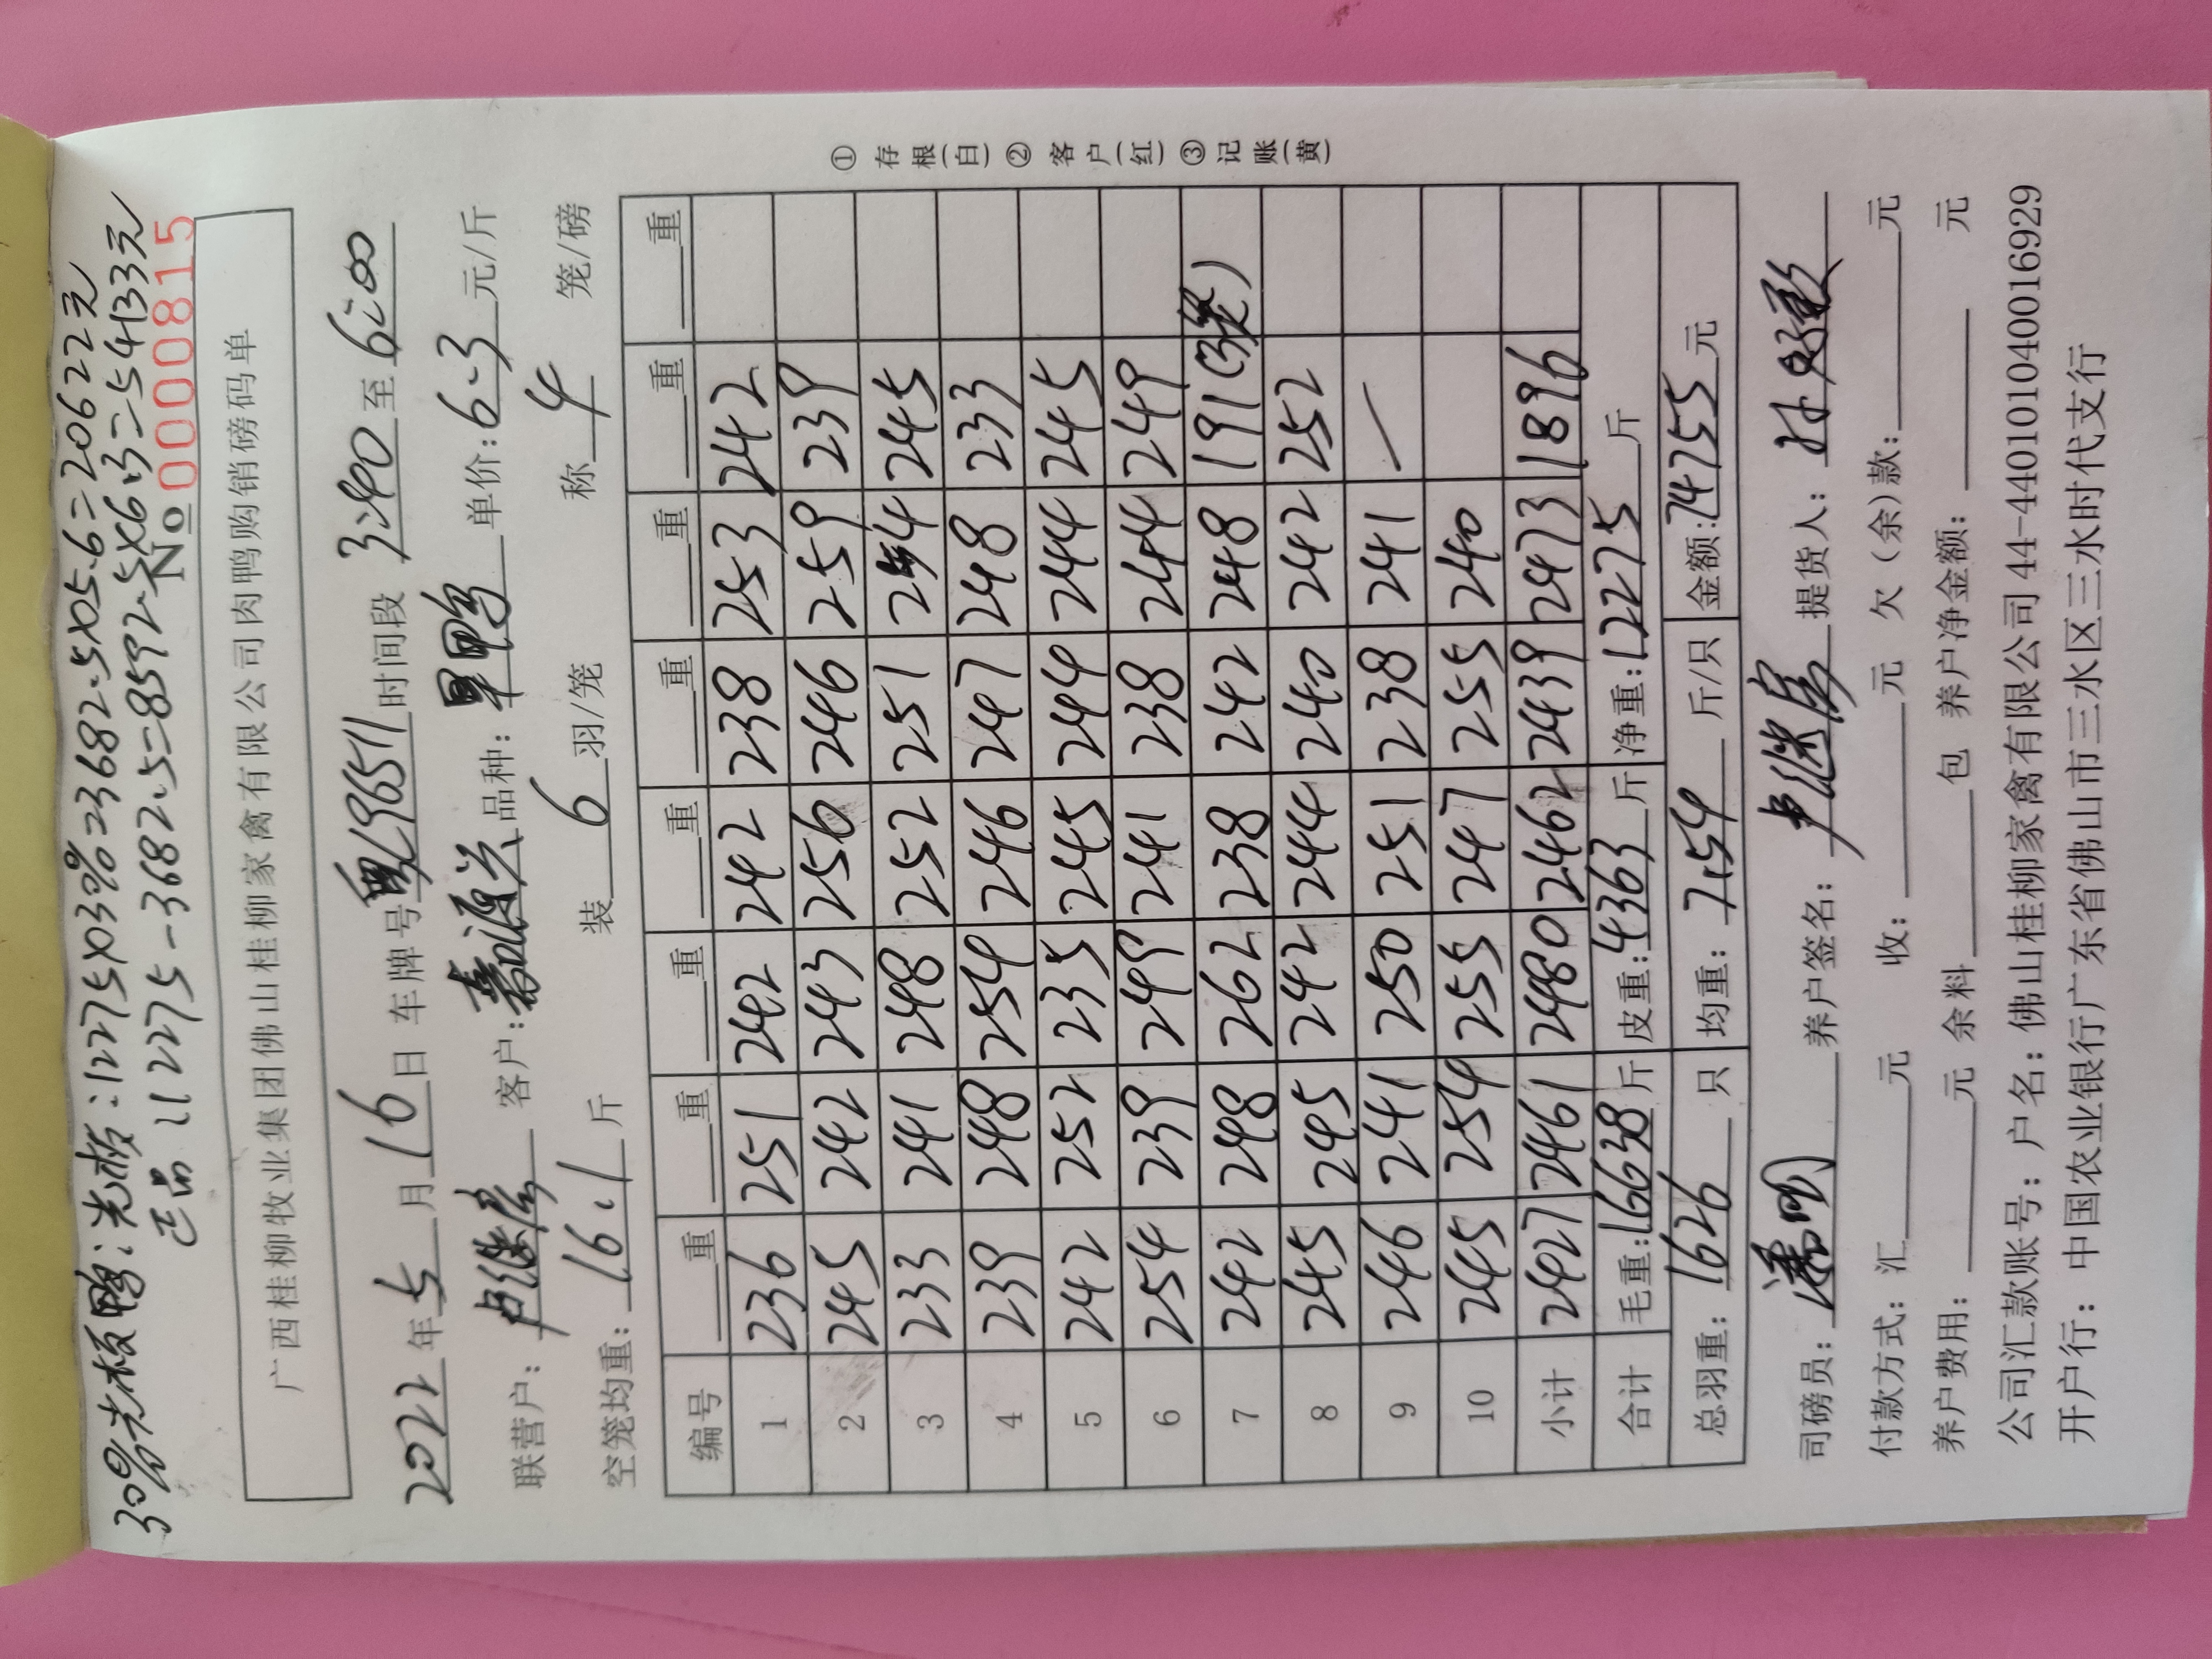 30%光板鸭:光板:12275×0.3%=3682.5×05.6=20622元
正品:12275-3682.5=8592.5×6.3=54133元
№00000815
广西桂柳牧业集团佛山桂柳家禽有限公司肉鸭购销磅码单
2022年5月16日 车牌号 L96511 时间段 3:40 至 6:00
联营户: 卢继房 客户: 嘉源兴 品种: 旱鸭 单价: 6.3 元/斤
空笼均重: 16.1 斤 装 6 羽/笼 称 4 笼/磅
编号 重 重 重 重 重 重 重 重
1 236 251 242 242 238 253 242
2 245 242 243 256 246 259 239
3 233 241 248 252 251 244 245
4 239 248 254 246 247 248 233
5 242 252 235 245 244 244 245
6 254 239 249 241 238 244 249
7 242 248 262 238 242 248 191(3笼)
8 245 245 242 244 240 242 252
9 246 241 250 251 238 241 /
10 245 254 255 247 255 240
小计 2427 2461 2480 2462 2439 2473 1896
合计 毛重: 16638 斤 皮重: 4363 斤 净重: 12275 斤
总羽重: 1626 只 均重: 7.54 斤/只 金额: 74755 元
① 存根(白) ② 客户(红) ③ 记账(黄)
司磅员: 养户签名: 卢继房 提货人:
付款方式: 汇 元 收: 元 欠(余)款: 元
养户费用: 元 余料 包 养户净金额: 元
公司汇款账号: 户名: 佛山桂柳家禽有限公司 44-440101040016929
开户行: 中国农业银行广东省佛山市三水区三水时代支行